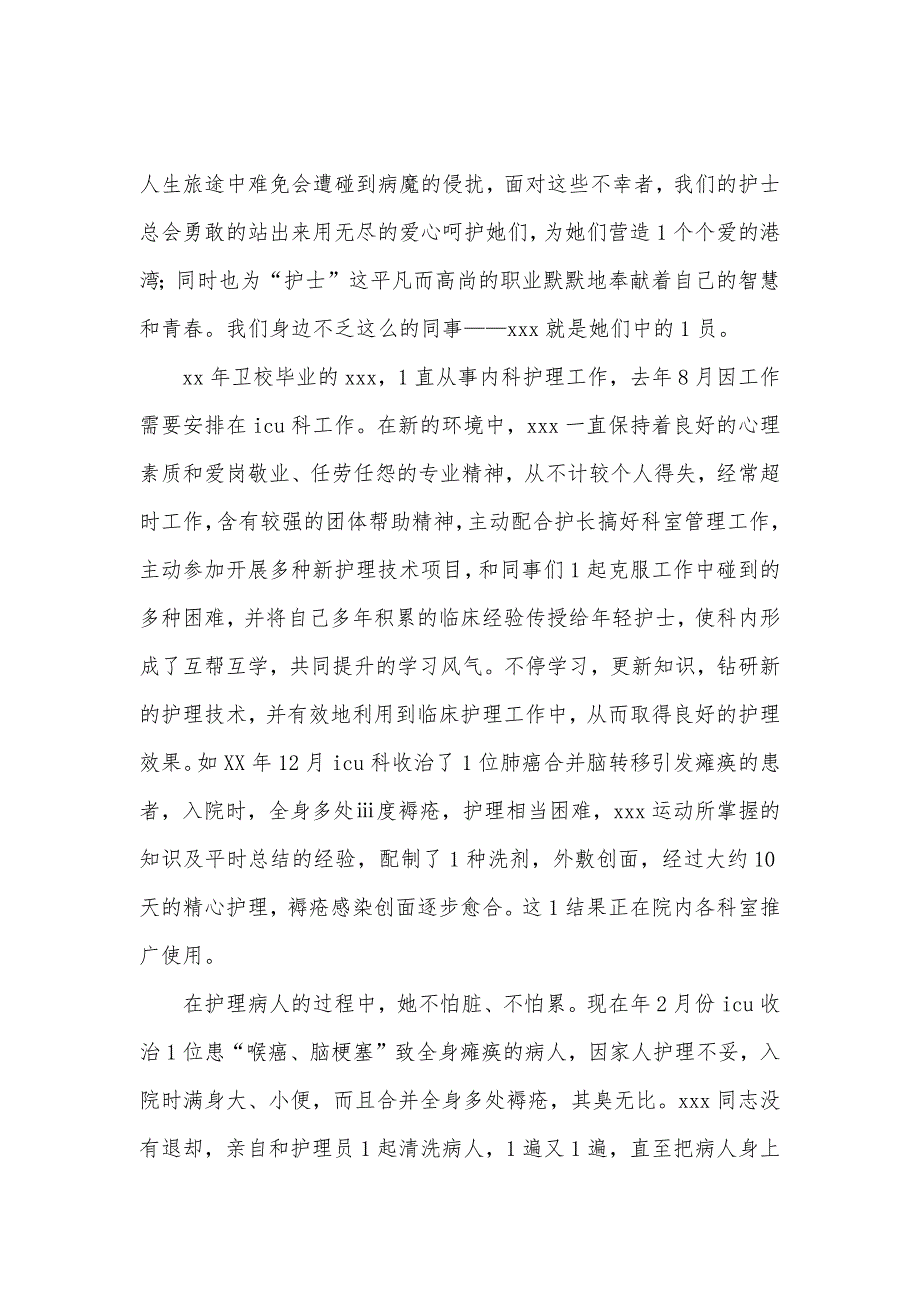 人生旅途中难免会遭碰到病魔的侵扰，面对这些不幸者，我们的护士
总会勇敢的站出来用无尽的爱心呵护她们，为她们营造 1 个个爱的港
湾；同时也为“护士”这平凡而高尚的职业默默地奉献着自己的智慧
和青春。我们身边不乏这么的同事——xxx 就是她们中的 1 员。
xx 年卫校毕业的 xxx，1 直从事内科护理工作，去年 8 月因工作
需要安排在 icu 科工作。在新的环境中，xxx 一直保持着良好的心理
素质和爱岗敬业、任劳任怨的专业精神，从不计较个人得失，经常超
时工作，含有较强的团体帮助精神，主动配合护长搞好科室管理工作，
主动参加开展多种新护理技术项目，和同事们 1 起克服工作中碰到的
多种困难，并将自己多年积累的临床经验传授给年轻护士，使科内形
成了互帮互学，共同提升的学习风气。不停学习，更新知识，钻研新
的护理技术，并有效地利用到临床护理工作中，从而取得良好的护理
效果。如 XX 年 12 月 icu 科收治了 1 位肺癌合并脑转移引发瘫痪的患
者，入院时，全身多处ⅲ度褥疮，护理相当困难，xxx 运动所掌握的
知识及平时总结的经验，配制了 1 种洗剂，外敷创面，经过大约 10
天的精心护理，褥疮感染创面逐步愈合。这 1 结果正在院内各科室推
广使用。
在护理病人的过程中，她不怕脏、不怕累。现在年 2 月份 icu 收
治 1 位患“喉癌、脑梗塞”致全身瘫痪的病人，因家人护理不妥，入
院时满身大、小便，而且合并全身多处褥疮，其臭无比。xxx 同志没
有退却，亲自和护理员 1 起清洗病人，1 遍又 1 遍，直至把病人身上